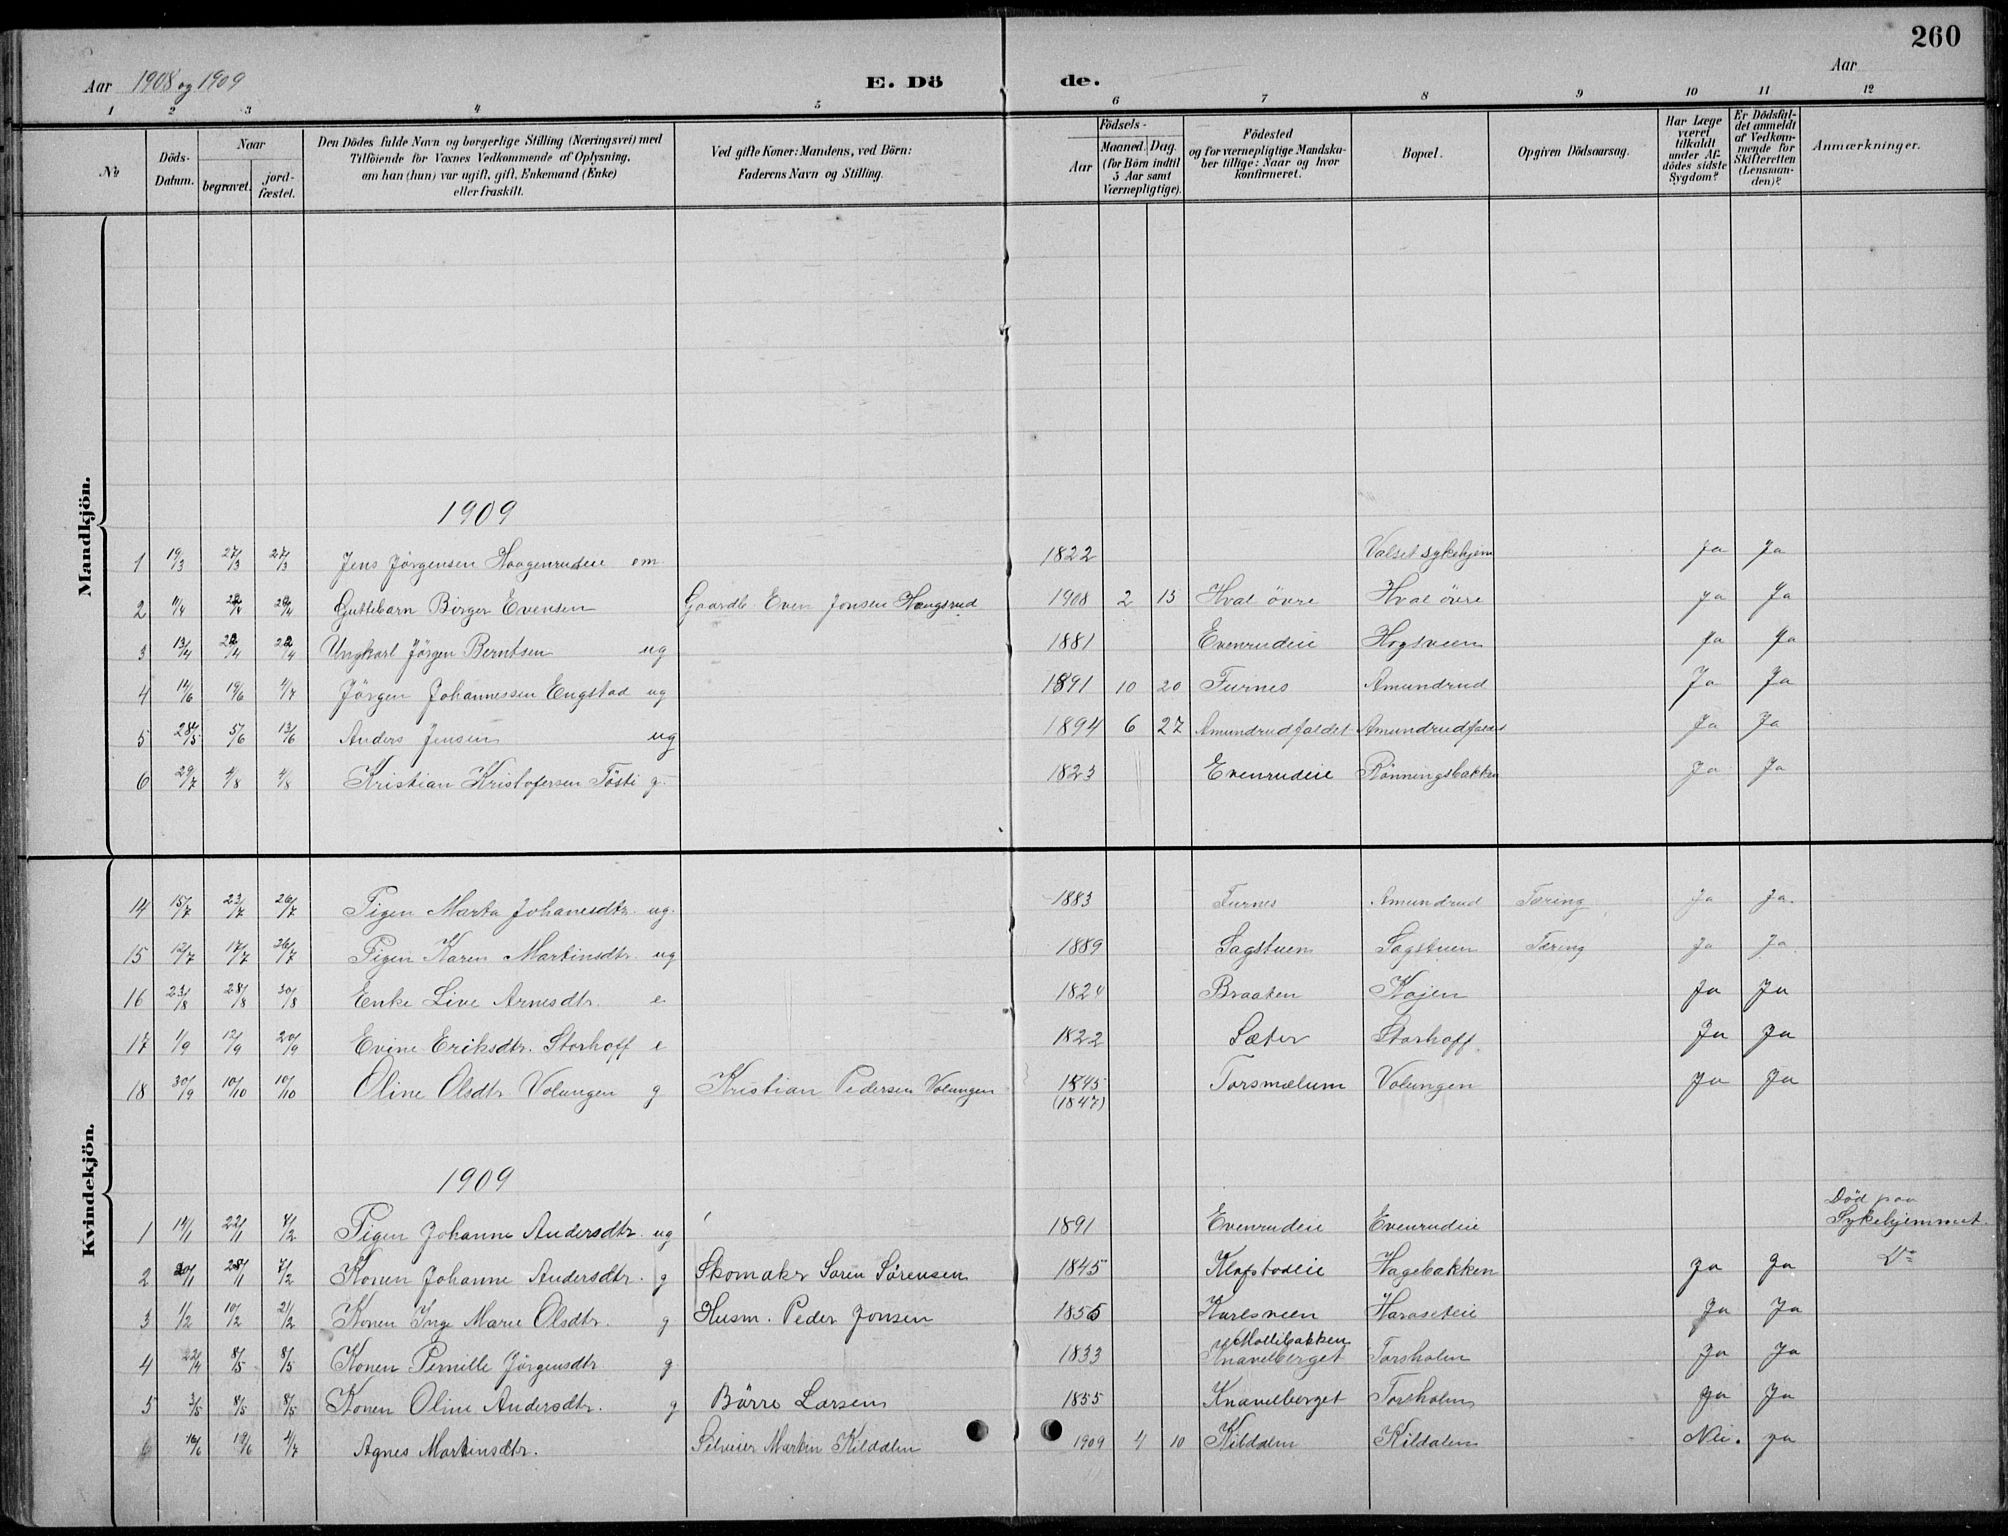 260
Aar 1908 og 1909
E. Dö de.
Aar
1 2 3 4 5 6 7 8 9 10 11 12
No
Döds-Datum.
Naar
begravet.
jord-fæstet.
Den Dödes fulde Navn og borgerlige Stilling (Næringsvei) med
Tilföiende for Voxnes Vedkommende af Oplysning,
om han (hun) var ugift, gift, Enkemand (Enke)
eller fraskilt.
Ved gifte Koner: Mandens, ved Börn:
Faderens Navn og Stilling.
Födsels-
Aar
Maaned. Dag.
(for Börn indtil
5 Aar samt
Værnepligtige).
Födested
og for værnepligtige Mandska-
ber tillige: Naar og hvor
konfirmeret.
Bopæl.
Opgiven Dödsaarsag.
Har Læge
været
tilkaldt
under Af-
dödes sidste
Sygdom?
Er Dödsfal-
det anmeldt
af Vedkom-
mende for
Skifteretten
(Lensman-
den)?
Anmærkninger.
Mandkjön.
1909
1 19/3 27/3 27/3 Jens Jörgensen Haagenrudeie em 1822 Valset sykehjem Ja Ja
2 11/4 22/4 22/4 Guttebarn Birger Evensen Gaardb. Even Jonsen Haugsrud 1908 2 13 Hval övre Hval övre ja Ja
3 13/4 22/4 22/4 Ungkarl Jörgen Berntsen ug 1881 Evenrudeie Hogsveen Ja Ja
4 14/6 19/6 4/7 Jörgen Johannessen Engstad ug 1891 10 20 Furnes Amundrud Ja Ja
5 28/5 5/6 13/6 Anders Jensen ug 1894 6 27 Amundrudfaldet Amundrudfaldet Ja Ja
6 29/7 4/8 4/8 Kristian Kristofersen Tösti g. 1823 Evenrudeie Rönningsbakken Ja Ja
Kvindekjön.
14 15/7 23/7 26/7 Pigen Marta Johanesdtr. ug. 1883 Furnes Amundrud Tæring Ja Ja.
15 12/7 17/7 26/7 Pigen Karen Martinsdtr. ug 1889 Sagstuen Sagstuen Tæring Ja Ja.
16 23/8 28/8 30/8 Enke Live Arnesdtr. e 1824 Braaten Kojen Ja Ja
17 1/9 12/9 20/9 Evine Eriksdtr. Storhoff e 1822 Sæter Storhoff. Ja Ja
18 30/9 10/10 10/10 Oline Olsdtr Volungen g Kristian Pedersen Volungen 1845 Torsmælum Volungen Ja Ja
(1847)
1909
1 14/1 22/1 4/2 Pigen Johanne Andersdtr. ug 1891 Evenrudeie Evenrudeie Död paa
Sykehjemmet.
2 20/1 28/1 7/2 Konen Johanne Andersdtr. g Skomaker Soren Sörensen 1845 Klafstadeie Hagebakken Ja Ja Do
3 1/2 10/2 21/2 Konen Inge Marie Olsdtr. g Husm. Peder Jonsen 1855 Karlsveen Haraseteie Ja Ja
4 22/4 8/5 8/5 Konen Pernille Jörgensdtr g 1833 Mollebakken
Knavelberget Torsholm Ja Ja
5 3/5 8/5 8/5 Konen Oline Andersdtr. g Börre Larsen 1855 Knavelberget Torsholm Ja Ja
6 16/6 19/6 4/7 Agnes Martinsdtr. Selveier Martin Kildalen 1909 4 10 Kildalen Kildalen Nei. ja